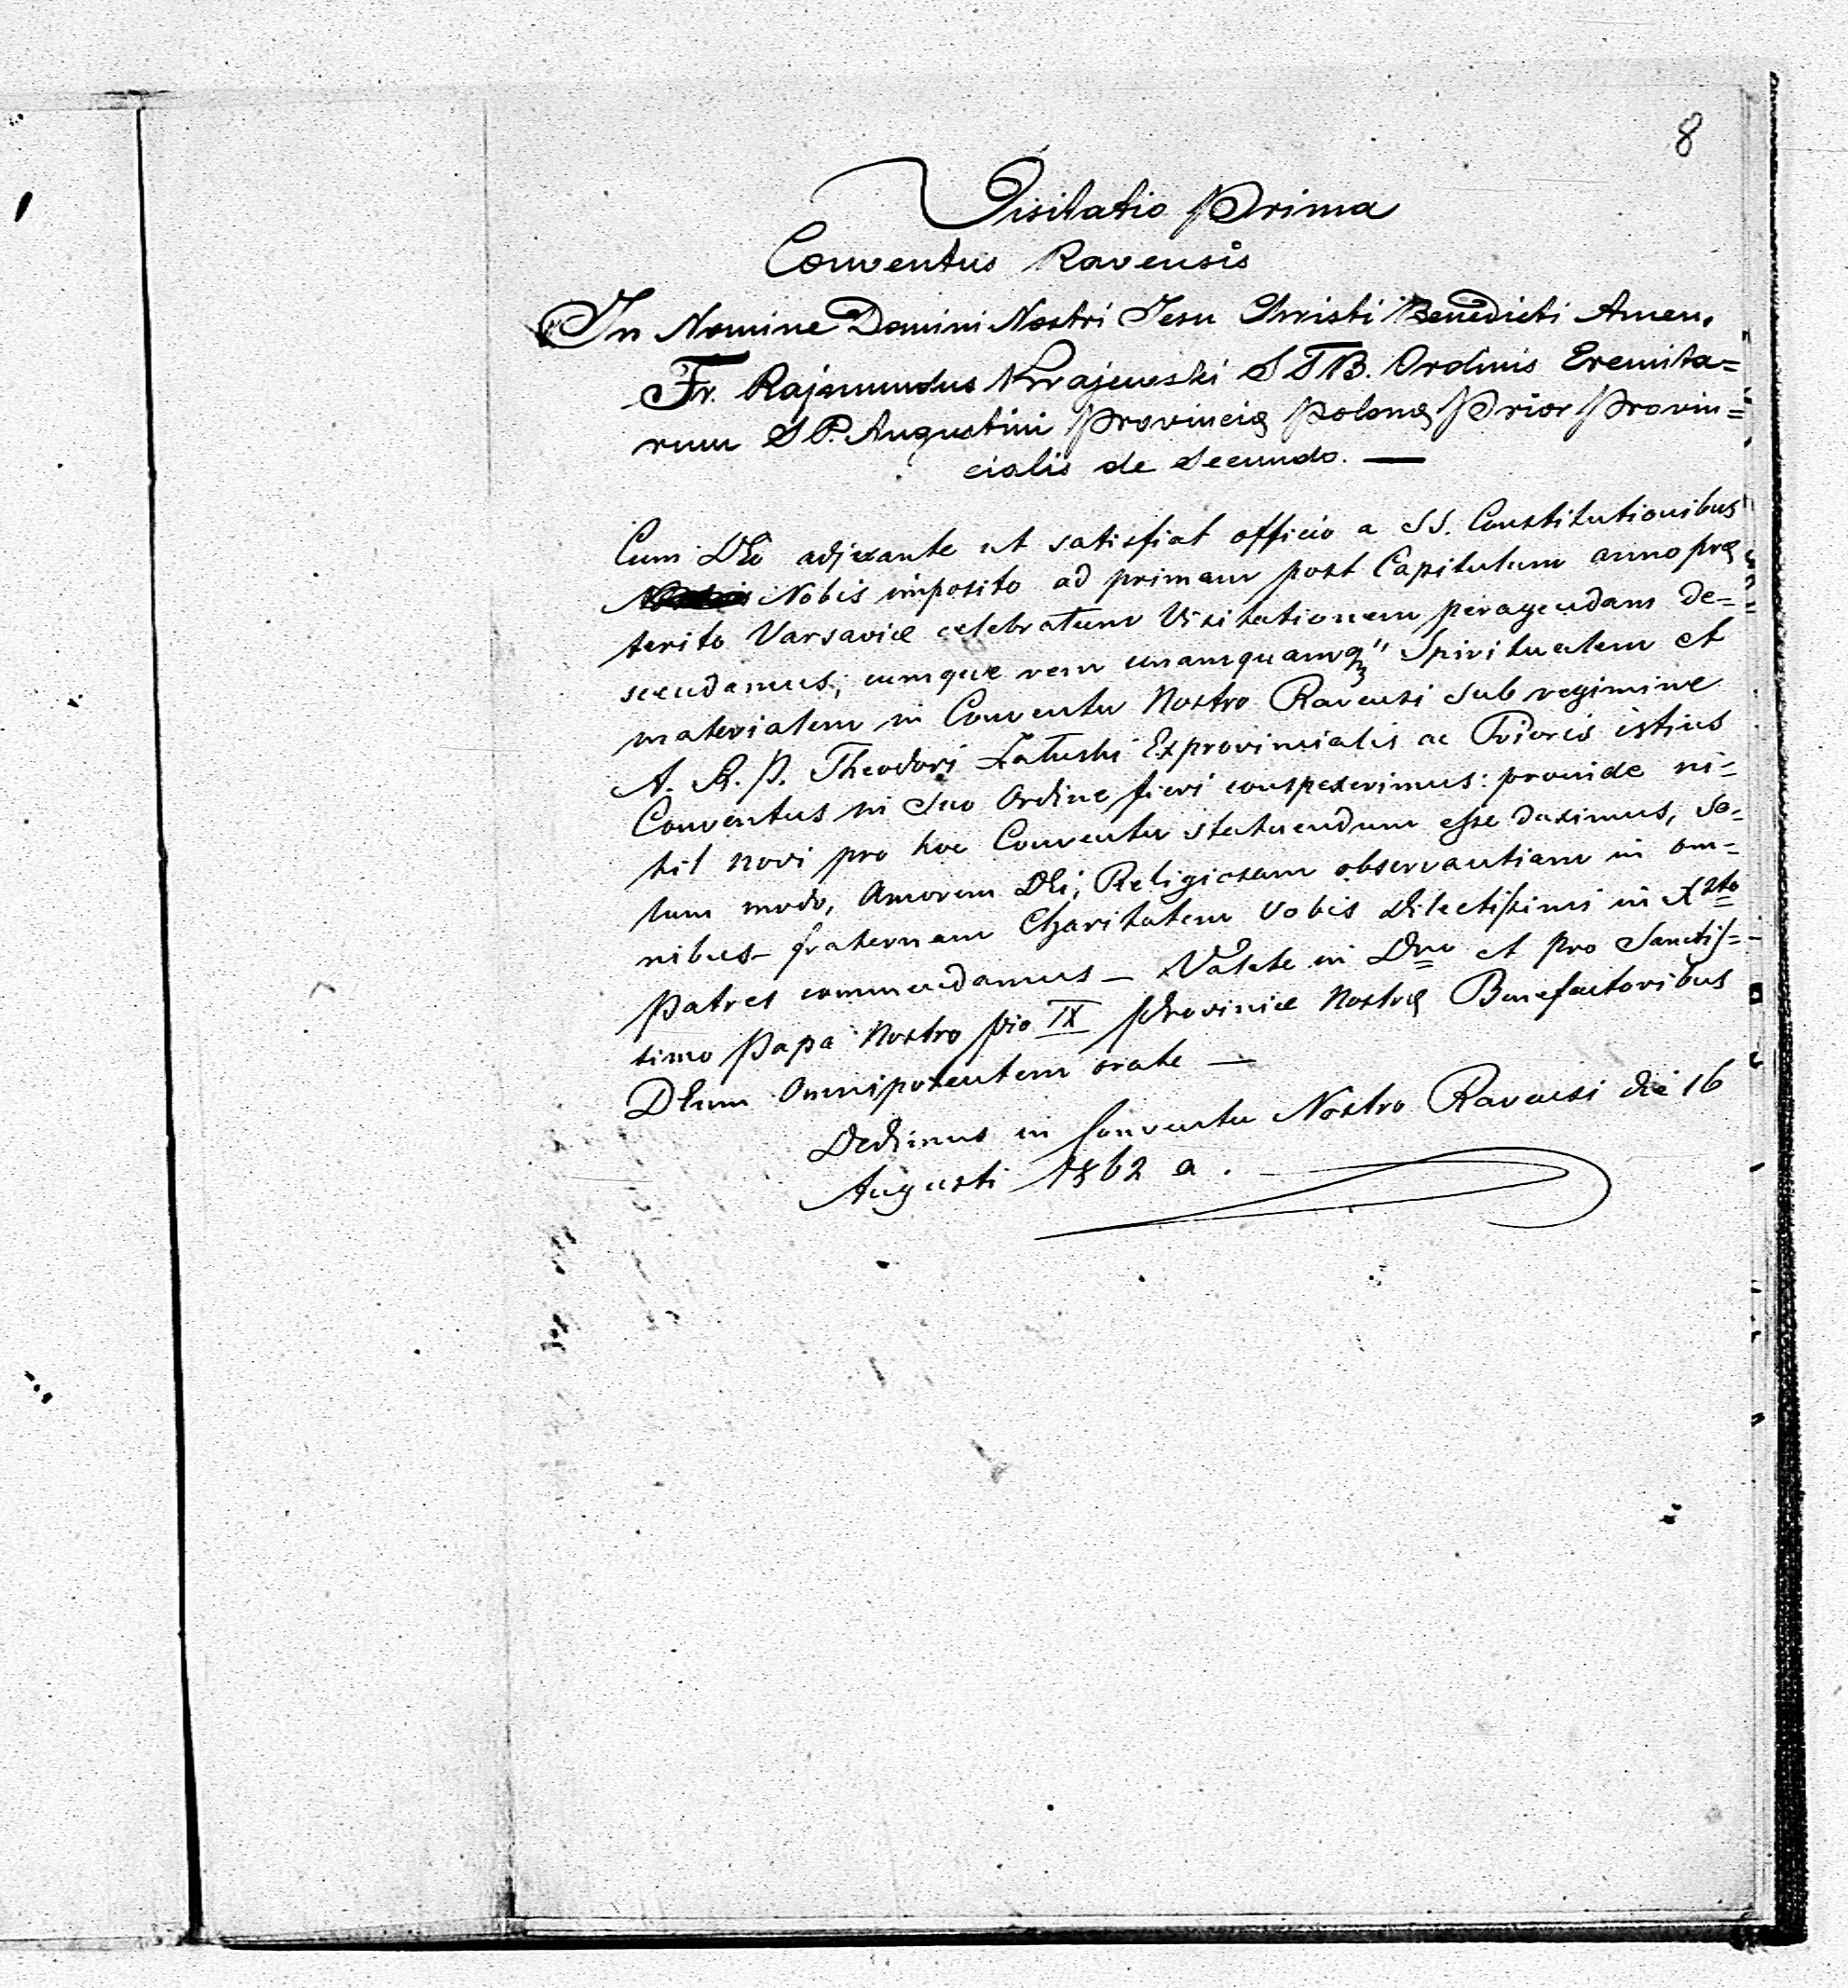 8
Visitatio Prima
Conventus Ravensis
In Nomine Domini Nostri Jesu Christi Benedicti Amen.
Fr. Rajmundus Krajewski S T B. Ordinis Eremita=
rum S P. Augustini Provincię Polonę Prior Provin=
cialis de Secundo. —
Cum Dło adjuvante ut satisfiat officio a SS. Constitutionibus
Nobis imposito ad primam post Capitulum anno prę
terito Varsaviæ celebratum Visitationem peragendam de=
scendamus; cumque rem unamquamq" Spiritualem et
materialem in Conventu Nostro Ravensi sub regimine
A. R. P. Theodori Łatuski Exprovincialis ac Prioris istius
Conventus in suo Ordine fieri conspexerimus: proinde ni=
hil novi pro hoc Conventu statuendum esse duximus, so=
lum modo, Amorem Dłi, Religiosam observantiam in om=
nibus – fraternam Charitatem vobis dilectissimi in Xsto
Patres commendamus – Valete in Dno et pro Sanctis=
simo Papa Nostro Pio IX Provinciæ Nostrę Benefactoribus
Dłum Omnipotentem orate —
Dedimus in Conventu Nostro Ravensi die 16
Augusti 1862 a. –